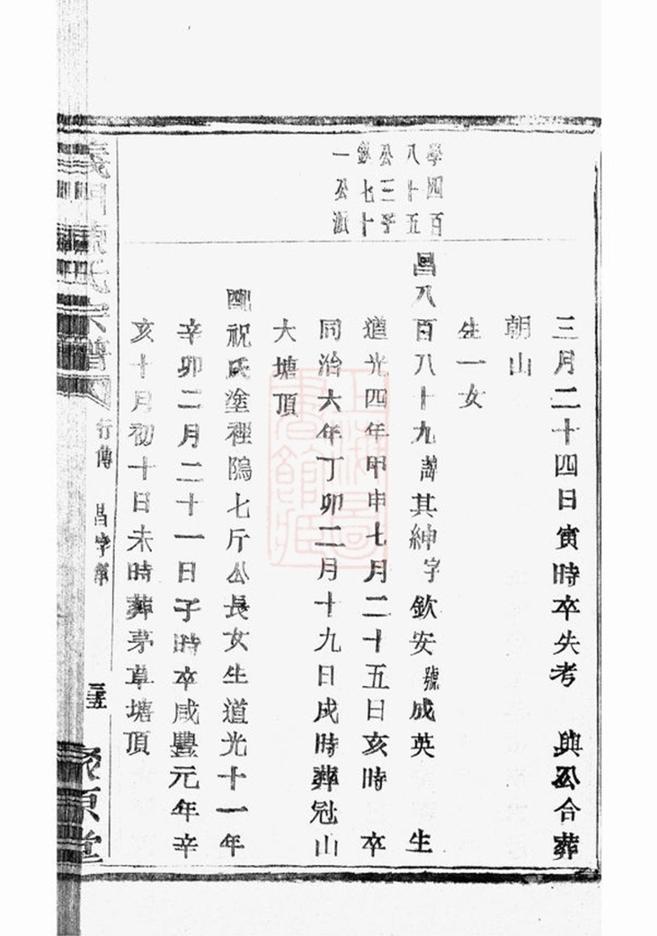 三月二十四日寅時卒失考　與公合葬
朝山
生一女
學四百
八十五
公三子
欽七十
一公派
昌八百八十九諱其紳字欽安號成英　生
道光四年甲申七月二十五日亥時　卒
同治六年丁卯二月十九日戌時葬冠山
大塘頂
配祝氏塗裡隝七斤公長女生道光十一年
辛卯二月二十一日子時卒咸豐元年辛
亥十月初十日未時葬茅草塘頂
義門陳氏宗譜
行傳　昌字輩
三五
聚原堂